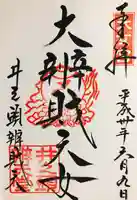 奉拝
平成廿年五月九日
大辨財天女
井之頭辨財天